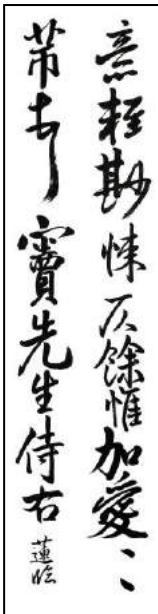 意輕尠悚仄餘惟加愛〻
芾頓首 竇先生侍右 蓮臨